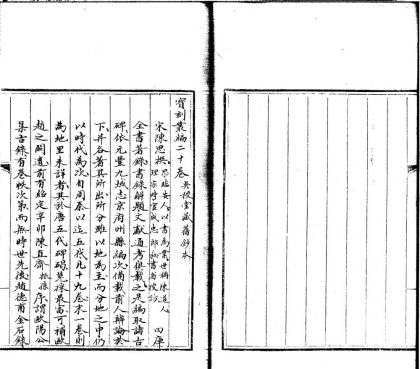 寶刻叢編二十卷 吴枚堂藏舊鈔本
宋陳思撰 思臨安人以書為業世稱陳道人 理宗時官成忠郎祕書省搜訪 四庫
全書著錄書錄解題文獻通考俱載之是編取諸古
碑依元豐九域志京府州縣編次備載前人辨論於
下并各著其所出所分雖以地為主而分地之中仍
以時代為次自周秦以迄五代凡十九卷末一卷則
為地里未詳者其於唐五代碑碣蒐採最富可補歐
趙之闕遺前有紹定辛卯陳直齋 振孫 序謂歐陽公
集古錄有卷帙次第而無時世先後趙德甫金石錄